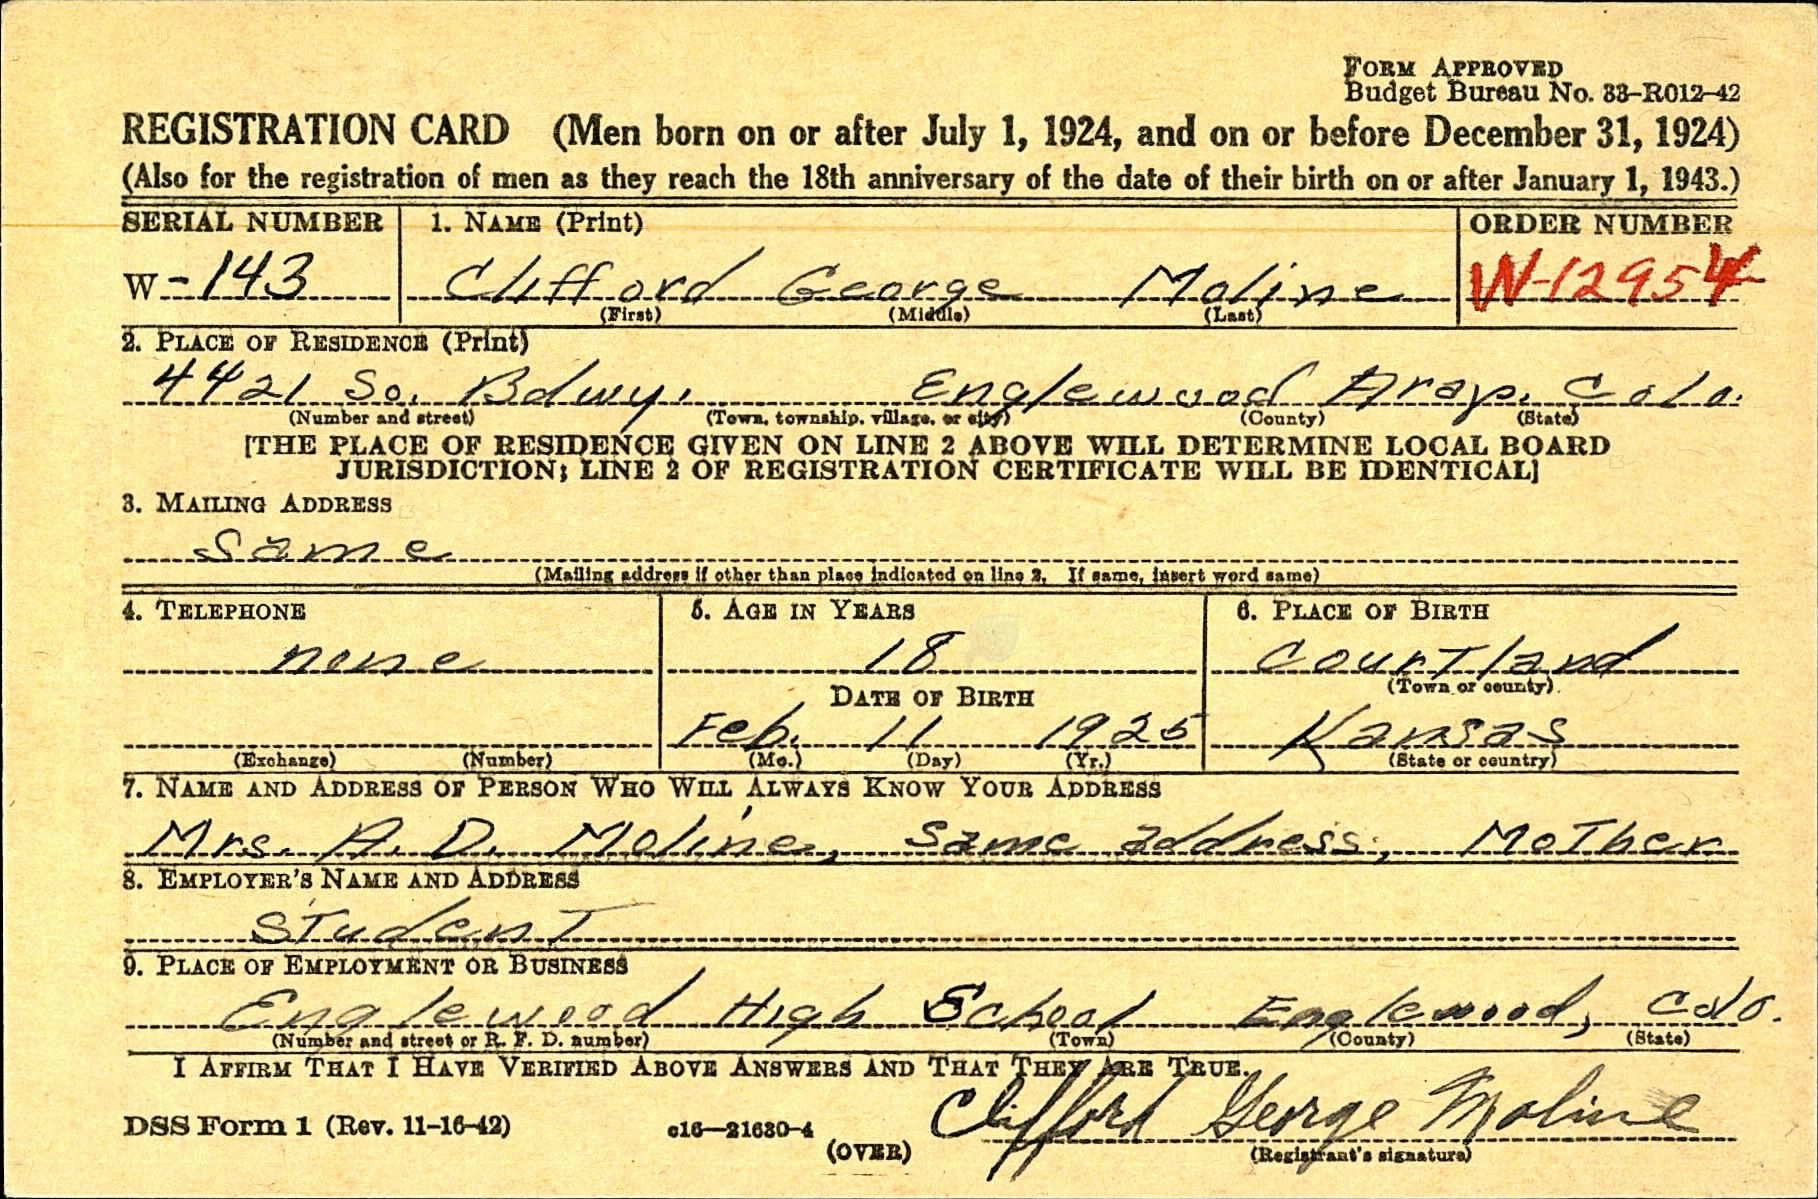 FORM APPROVED
Budget Bureau No. 33-R012-42
REGISTRATION CARD (Men born on or after July 1, 1924, and on or before December 31, 1924)
(Also for the registration of men as they reach the 18th anniversary of the date of their birth on or after January 1, 1943.)
SERIAL NUMBER 1. NAME (Print) ORDER NUMBER
W-143 Clifford George Moline W-12954
(First) (Middle) (Last)
2. PLACE OF RESIDENCE (Print)
4421 So. Bdwy. Englewood Arap. Colo.
(Number and street) (Town, township, village, or city) (County) (State)
[THE PLACE OF RESIDENCE GIVEN ON LINE 2 ABOVE WILL DETERMINE LOCAL BOARD
JURISDICTION; LINE 2 OF REGISTRATION CERTIFICATE WILL BE IDENTICAL]
3. MAILING ADDRESS
Same
(Mailing address if other than place indicated on line 2. If same, insert word same)
4. TELEPHONE 5. AGE IN YEARS 6. PLACE OF BIRTH
none 18 Courtland
(Town or county)
DATE OF BIRTH
Feb. 11 1925 Kansas
(Exchange) (Number) (Mo.) (Day) (Yr.) (State or country)
7. NAME AND ADDRESS OF PERSON WHO WILL ALWAYS KNOW YOUR ADDRESS
Mrs. A. D. Moline, Same address, Mother
8. EMPLOYER'S NAME AND ADDRESS
Student
9. PLACE OF EMPLOYMENT OR BUSINESS
Englewood High School Englewood, Colo.
(Number and street or R. F. D. number) (Town) (County) (State)
I AFFIRM THAT I HAVE VERIFIED ABOVE ANSWERS AND THAT THEY ARE TRUE.
Clifford George Moline
DSS Form 1 (Rev. 11-16-42) c16—21630-4 (OVER) (Registrant's signature)